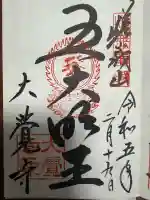 嵯峨山
令和五年
二月十九日
五大明王
大覺寺